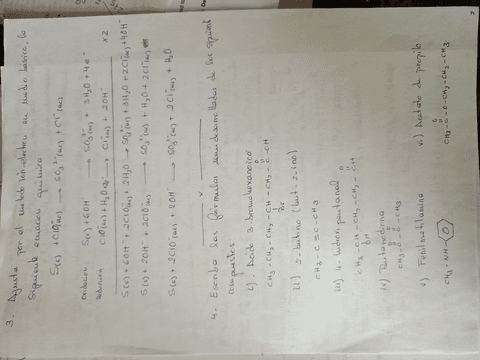 3. Ajusta por el metodo ion-electron en medio básico, la
siguiente ecuación química
S(s) + ClO⁻(ac) → SO₃²⁻(ac) + Cl⁻(ac)
Oxidación S(s) + 6OH⁻ → SO₃²⁻(ac) + 3H₂O + 4e⁻
Reducción ClO⁻(ac) + H₂O → Cl⁻(ac) + 2OH⁻ x2
S(s) + 6OH⁻ + 2ClO⁻(ac) + 2H₂O → SO₃²⁻(ac) + 3H₂O + 2Cl⁻(ac) + 4OH⁻
S(s) + 2OH⁻ + 2ClO⁻(ac) → SO₃²⁻(ac) + H₂O + 2Cl⁻(ac)
S(s) + 2ClO⁻(ac) + 2OH⁻ → SO₃²⁻(ac) + 2Cl⁻(ac) + H₂O
x
4. Escriba las fórmulas semidesarrolladas de los
compuestos
i) Ácido 3-bromohexanoico
CH₃-CH₂-CH₂-CH-CH₂-C-OH
Br O
ii) 2-butino (but-2-ino)
CH₃-C≡C-CH₃
iii) 4-hidroxipentanal
CH₃-CH-CH₂-CH₂-C-H
OH O
iv) Butanodiona
CH₃-C-C-CH₃
O O
v) Fenilmetilamina
CH₃-NH-
vi) Acetato de propilo
O
CH₃-C-O-CH₂-CH₂-CH₃